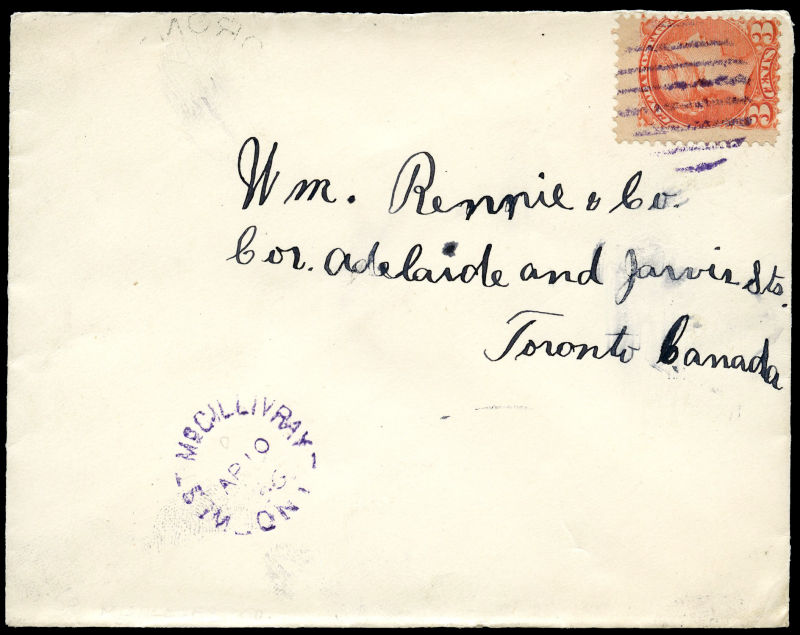 3 CENTS 3
Wm. Rennie & Co.
Cor. Adelaide and Jarvis Sts.
Toronto Canada
WEST McGILLIVRAY
AP 10
ONT